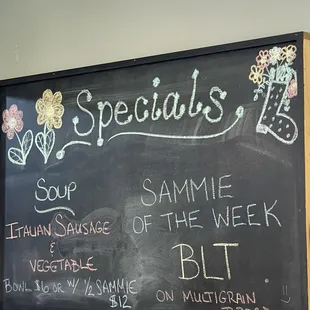 Specials
SOUP
ITALIAN SAUSAGE
&
VEGETABLE
BOWL $6 OR W/ 1/2 SAMMIE
$12
SAMMIE
OF THE WEEK
BLT
ON MULTIGRAIN